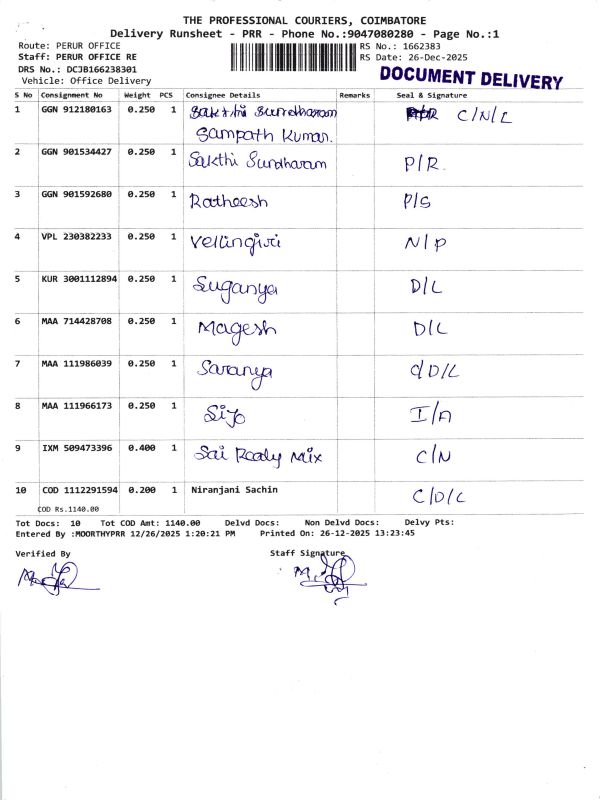 THE PROFESSIONAL COURIERS, COIMBATORE
Delivery Runsheet - PRR - Phone No.:9047080280 - Page No.:1
Route: PERUR OFFICE RS No.: 1662383
Staff: PERUR OFFICE RE RS Date: 26-Dec-2025
DRS No.: DCJB166238301
Vehicle: Office Delivery
DOCUMENT DELIVERY
S No Consignment No Weight PCS Consignee Details Remarks Seal & Signature
1 GGN 912180163 0.250 1 Sakthi Sundharam C/N/L
Sampath Kumar.
2 GGN 901534427 0.250 1 Sakthi Sundharam P/R.
3 GGN 901592680 0.250 1 Ratheesh P/S
4 VPL 230382233 0.250 1 Vellingiri N/P
5 KUR 3001112894 0.250 1 Suganya D/L
6 MAA 714428708 0.250 1 Magesh D/L
7 MAA 111986039 0.250 1 Saranya d/D/L
8 MAA 111966173 0.250 1 Sijo I/A
9 IXM 509473396 0.400 1 Sai Ready Mix C/N
10 COD 1112291594 0.200 1 Niranjani Sachin C/D/L
COD Rs.1140.00
Tot Docs: 10 Tot COD Amt: 1140.00 Delvd Docs: Non Delvd Docs: Delvy Pts:
Entered By :MOORTHYPRR 12/26/2025 1:20:21 PM Printed On: 26-12-2025 13:23:45
Verified By Staff Signature